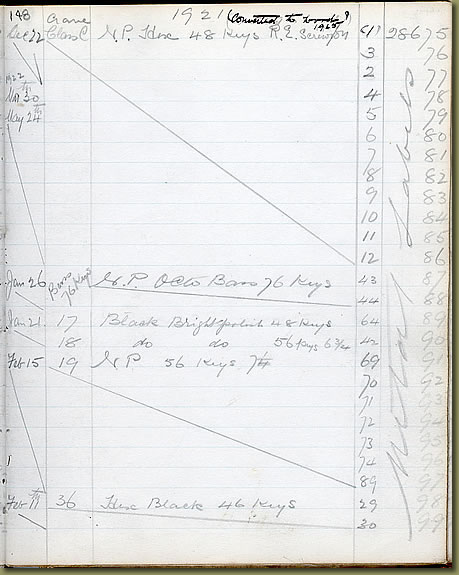 148 Crane 1921 (Converted to
1925
Dec 22 Class C N.P. Hex 48 Keys R.E. 1 28675
3 76
2 77
1922 4 78
Mar 20 5 79
May 24th 6 80
7 81
8 82
9 83
10 84
11 85
12 86
Jan 26 Bass 76 Keys N.P. Octo Bass 76 Keys 43 87
44 88
Jan 21. 17 Black Bright polish 48 Keys 64 89
18 do do 56 Keys 6 3/4 42 90
Feb 15 19 N.P 56 Keys 69 91
70 92
71 93
72 94
73 95
74 96
89 97
Feb 36 Hex Black 46 Keys 29 98
30 99
Metal Labels